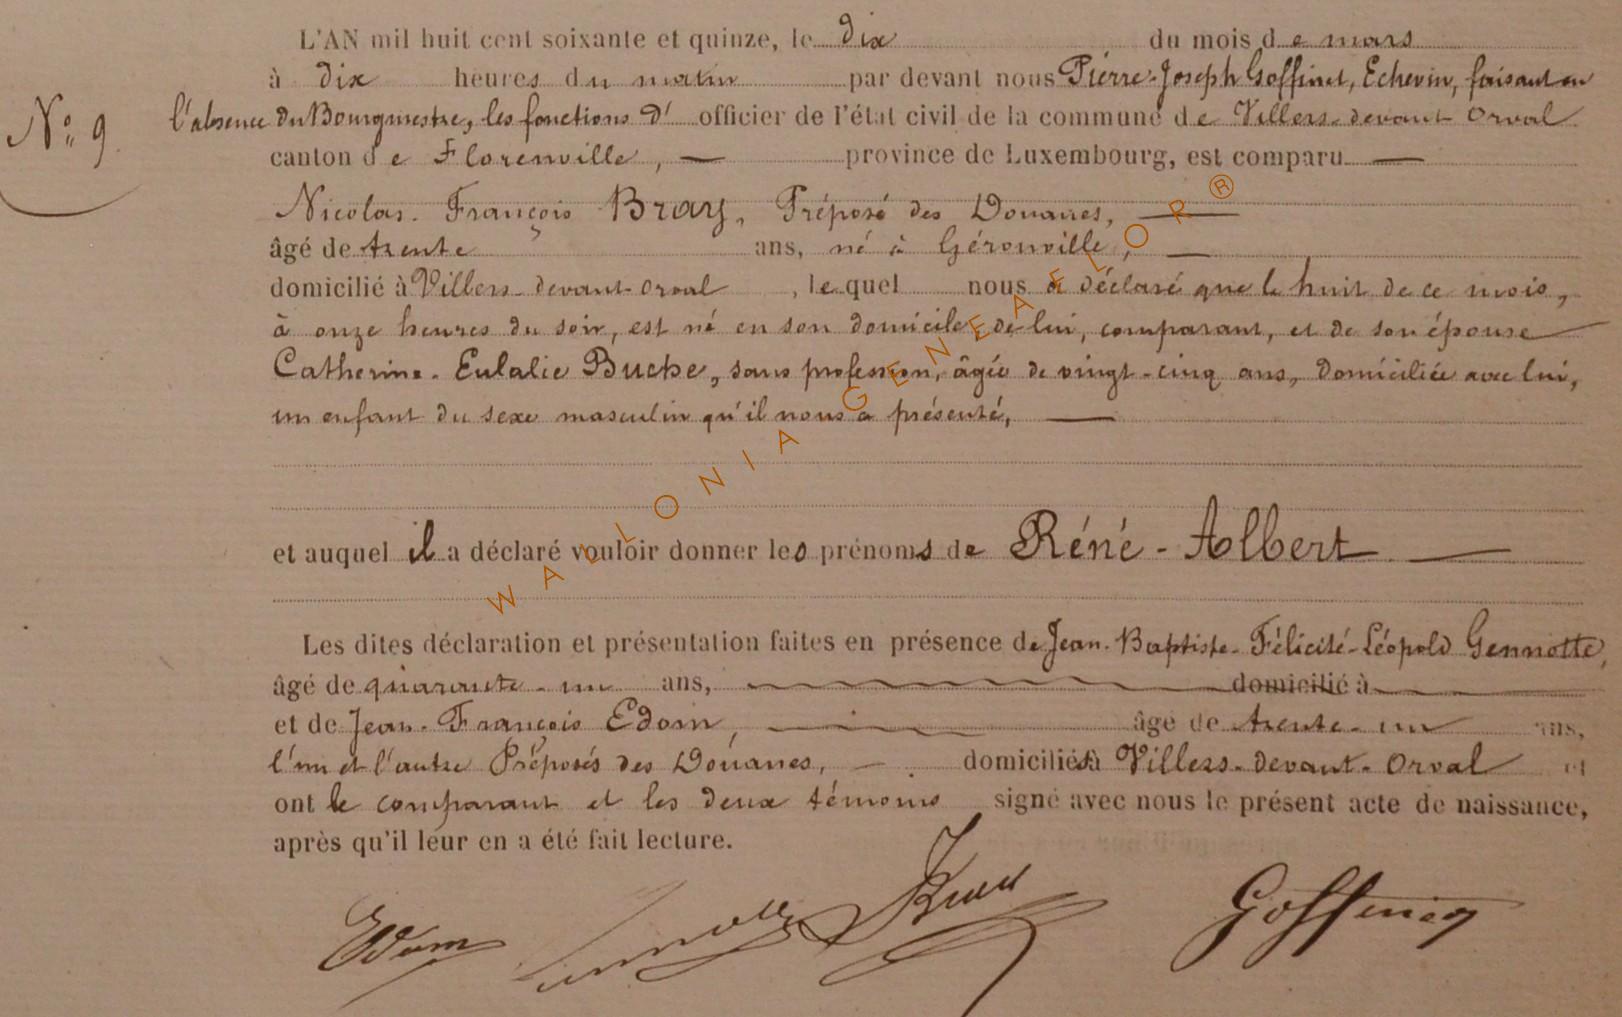 L'AN mil huit cent soixante et quinze, le dix du mois de mars
à dix heures du matin par devant nous Pierre-Joseph Goffinet, Echevin, faisant en
N° 9
l'absence du Bourgmestre, les fonctions d' officier de l'état civil de la commune de Villers-devant-Orval
canton de Florenville, — province de Luxembourg, est comparu —
Nicolas-François Bray, Préposé des Douanes, —
âgé de trente ans, né à Gérouville, —
domicilié à Villers-devant-Orval, lequel nous a déclaré que le huit de ce mois,
à onze heures du soir, est né en son domicile, de lui, comparant, et de son épouse
Catherine-Eulalie Buche, sans profession, âgée de vingt-cinq ans, domiciliée avec lui,
un enfant du sexe masculin qu'il nous a présenté, —
et auquel il a déclaré vouloir donner les prénoms de Réné-Albert —
Les dites déclaration et présentation faites en présence de Jean-Baptiste-Félicité-Léopold Gennotte,
âgé de quarante-un ans, domicilié à
et de Jean-François Edom, âgé de trente-un ans,
l'un et l'autre Préposés des Douanes, — domiciliés à Villers-devant-Orval et
ont le comparant et les deux témoins signé avec nous le présent acte de naissance,
après qu'il leur en a été fait lecture.
Edom Gennotte Bray Goffinet
WALLONIA GENEAFLOR ®